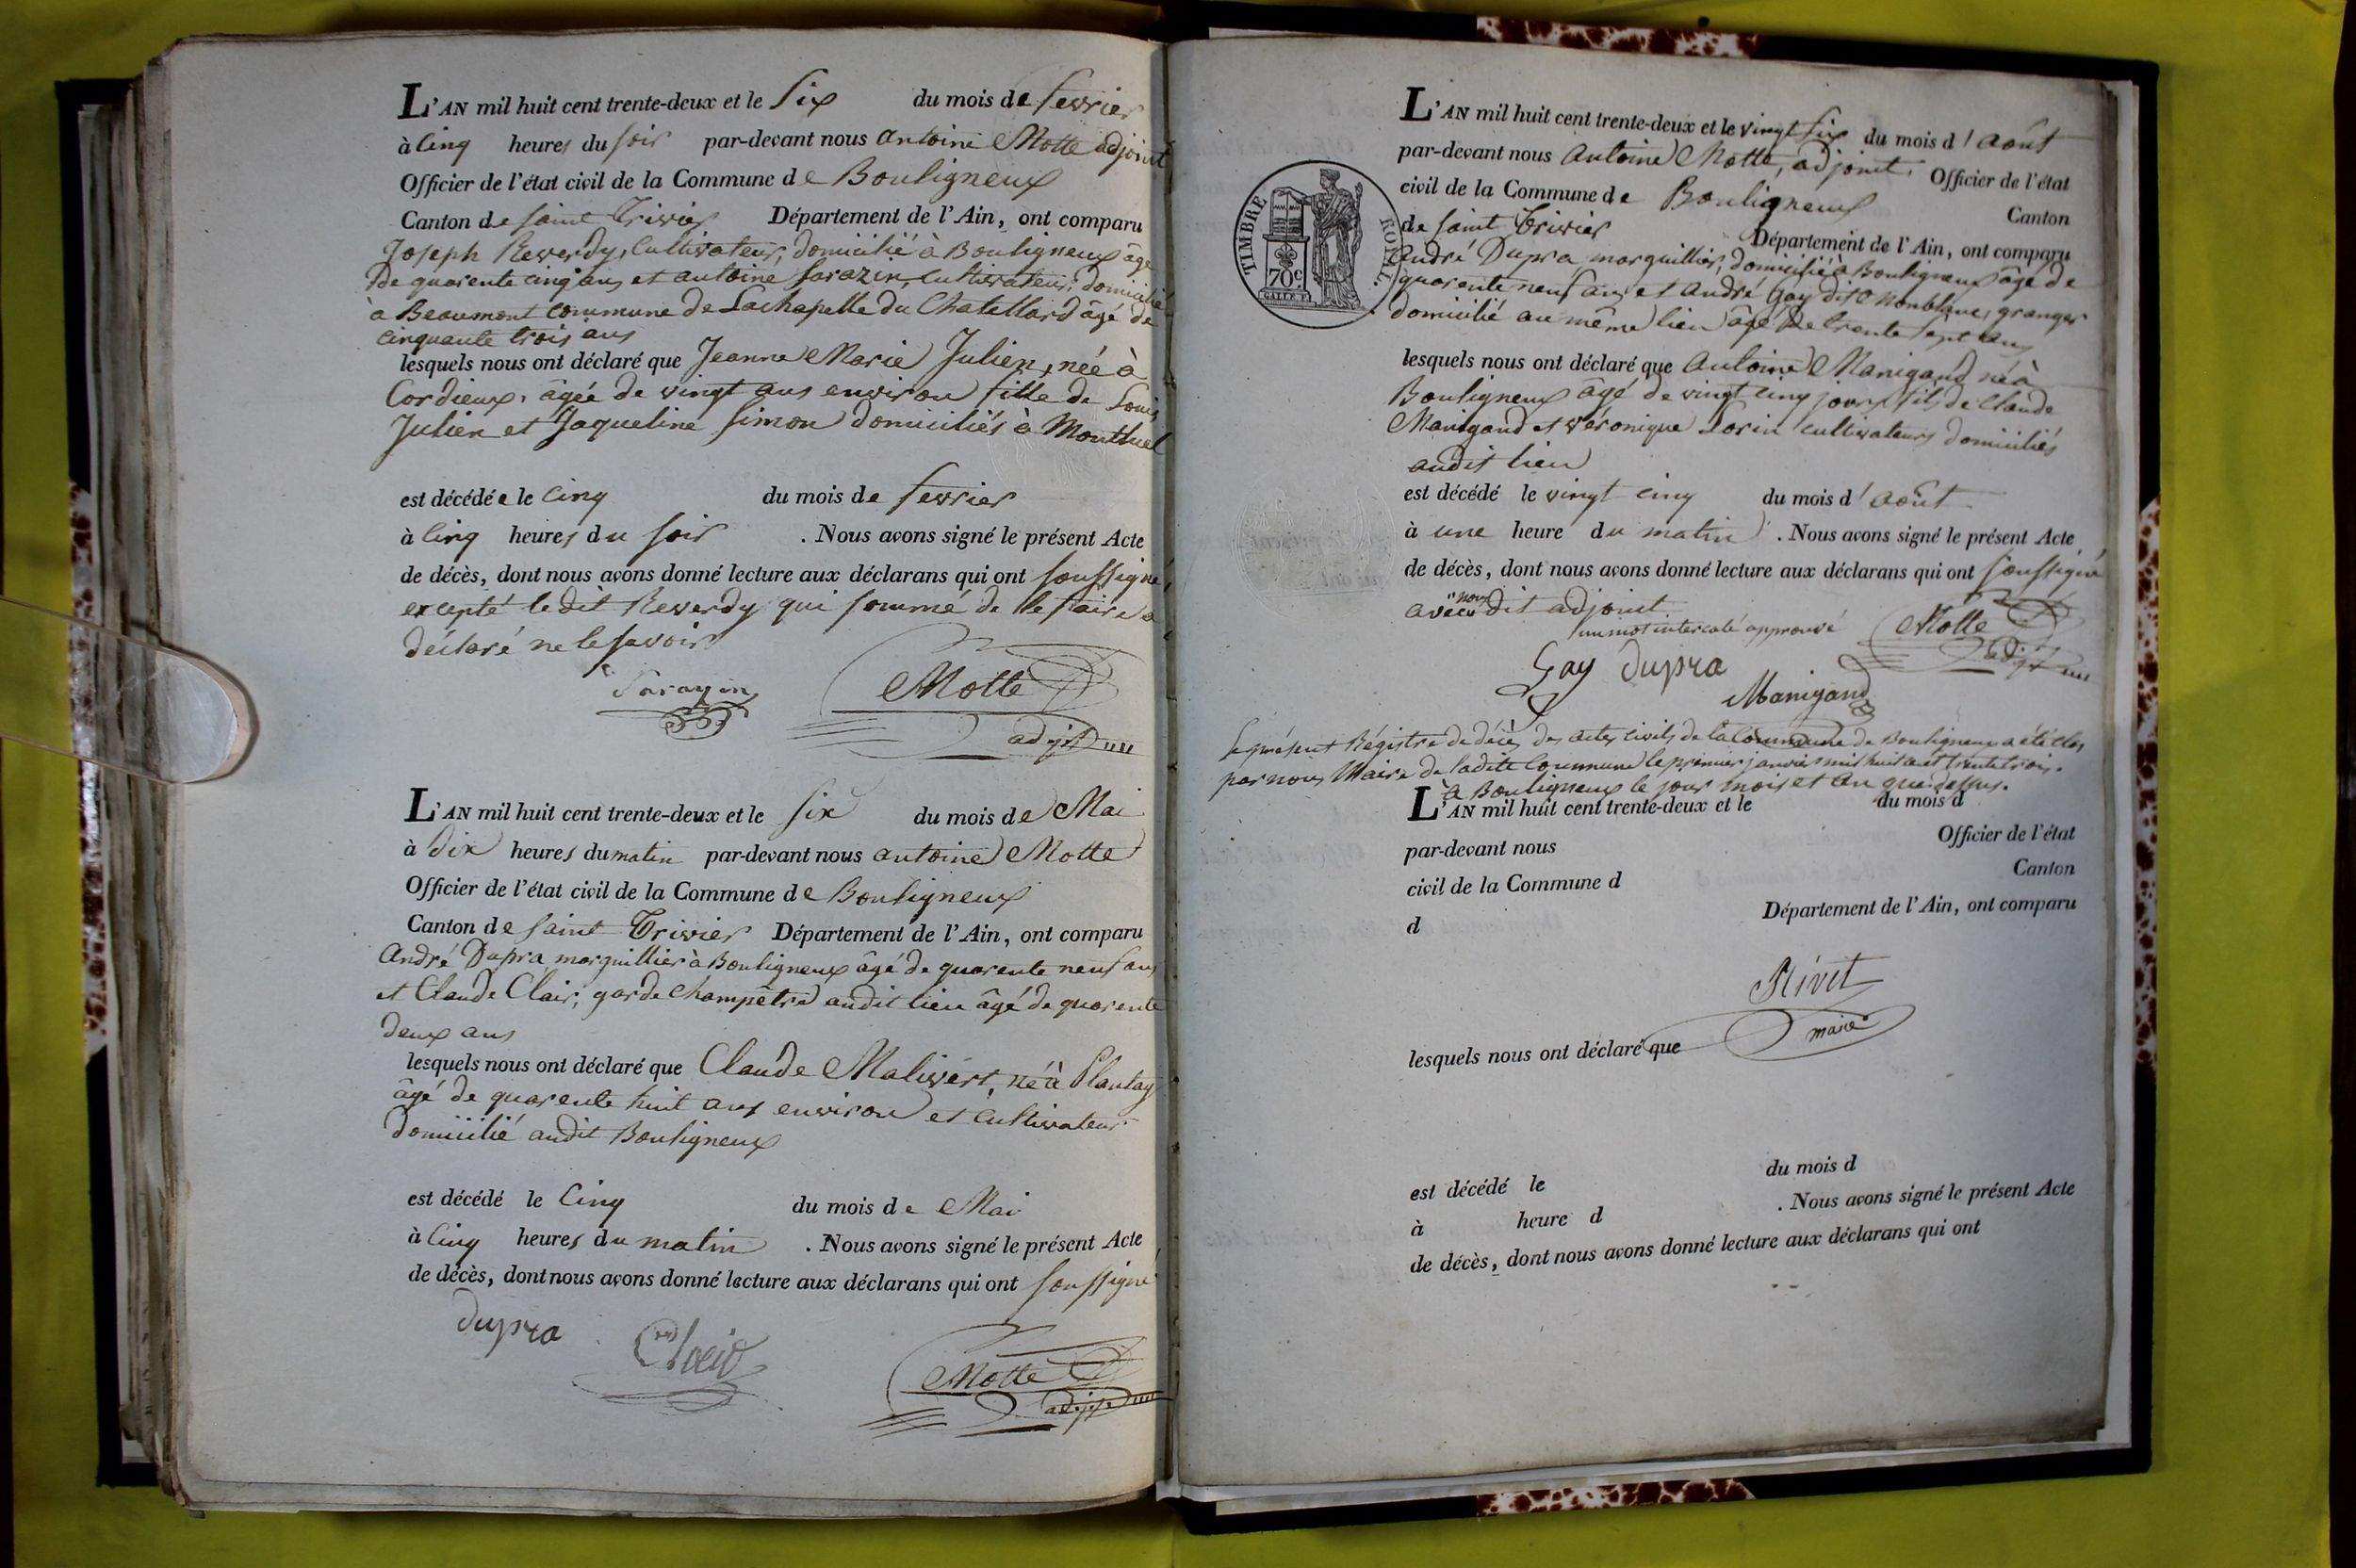 L'AN mil huit cent trente-deux et le Six du mois de fevrier
à Cinq heures du soir par-devant nous antoine Motte adjoint
Officier de l'état civil de la Commune de Bouligneux
Canton de saint Trivier Département de l'Ain, ont comparu
Joseph Reverdy, Cultivateur, domicilié à Bouligneux âgé
De quarente cinq ans et antoine Sarazin, cultivateur, domicilié
à Beaumont commune de Lachapelle du Chatellard âgé de
cinquante trois ans
lesquels nous ont déclaré que Jeanne Marie Julien, née à
Cordieux, âgée de vingt ans environ fille de Louis
Julien et Jaqueline Simon domiciliés à Montluel
est décédée le Cinq du mois de fevrier
à Cinq heures du soir . Nous avons signé le présent Acte
de décès, dont nous avons donné lecture aux déclarans qui ont soussigné,
excepté le dit Reverdy qui sommé de le faire a
déclaré ne le savoir
Sarazin Motte
adjt
L'AN mil huit cent trente-deux et le six du mois de Mai
à dix heures du matin par-devant nous antoine Motte
Officier de l'état civil de la Commune de Bouligneux
Canton de saint Trivier Département de l'Ain, ont comparu
André Dupra marguillier à Bouligneux âgé de quarente neuf ans
et Claude Clair, garde champêtre audit lieu âgé de quarente
deux ans
lesquels nous ont déclaré que Claude Malivert, né à Plantay
âgé de quarente huit ans environ et cultivateur
domicilié audit Bouligneux
est décédé le Cinq du mois de Mai
à Cinq heures du matin . Nous avons signé le présent Acte
de décès, dont nous avons donné lecture aux déclarans qui ont soussigné
dupra Clair
Motte
adjt
L'AN mil huit cent trente-deux et le vingt six du mois d'août
par-devant nous Antoine Motte, adjoint, Officier de l'état
civil de la Commune de Bouligneux Canton
de saint Trivier Département de l'Ain, ont comparu
TIMBRE ROYAL.
70c.
André Dupra marguillier, domicilié à Bouligneux âgé de
quarente neuf ans et André Gay dit granger
domicilié au même lieu âgé de trente sept ans
lesquels nous ont déclaré que Antoine Manigand né à
Bouligneux âgé de vingt cinq jours fils de Claude
Manigand et véronique Lorin cultivateurs domiciliés
audit lieu
est décédé le vingt cinq du mois d'août
à une heure du matin . Nous avons signé le présent Acte
de décès, dont nous avons donné lecture aux déclarans qui ont soussigné
avec nous dit adjoint
un mot intercalé approuvé Motte
adjt
Gay dupra
Manigand
Le présent Régistre de décès des actes civils de la Commune de Bouligneux a été clos
par nous Maire de ladite Commune le premier janvier mil huit cent trente trois.
à Bouligneux le jour mois et an que dessus.
L'AN mil huit cent trente-deux et le du mois d
par-devant nous Officier de l'état
civil de la Commune d Canton
d Département de l'Ain, ont comparu
Rivet
maire
lesquels nous ont déclaré que
est décédé le du mois d
à heure d . Nous avons signé le présent Acte
de décès, dont nous avons donné lecture aux déclarans qui ont